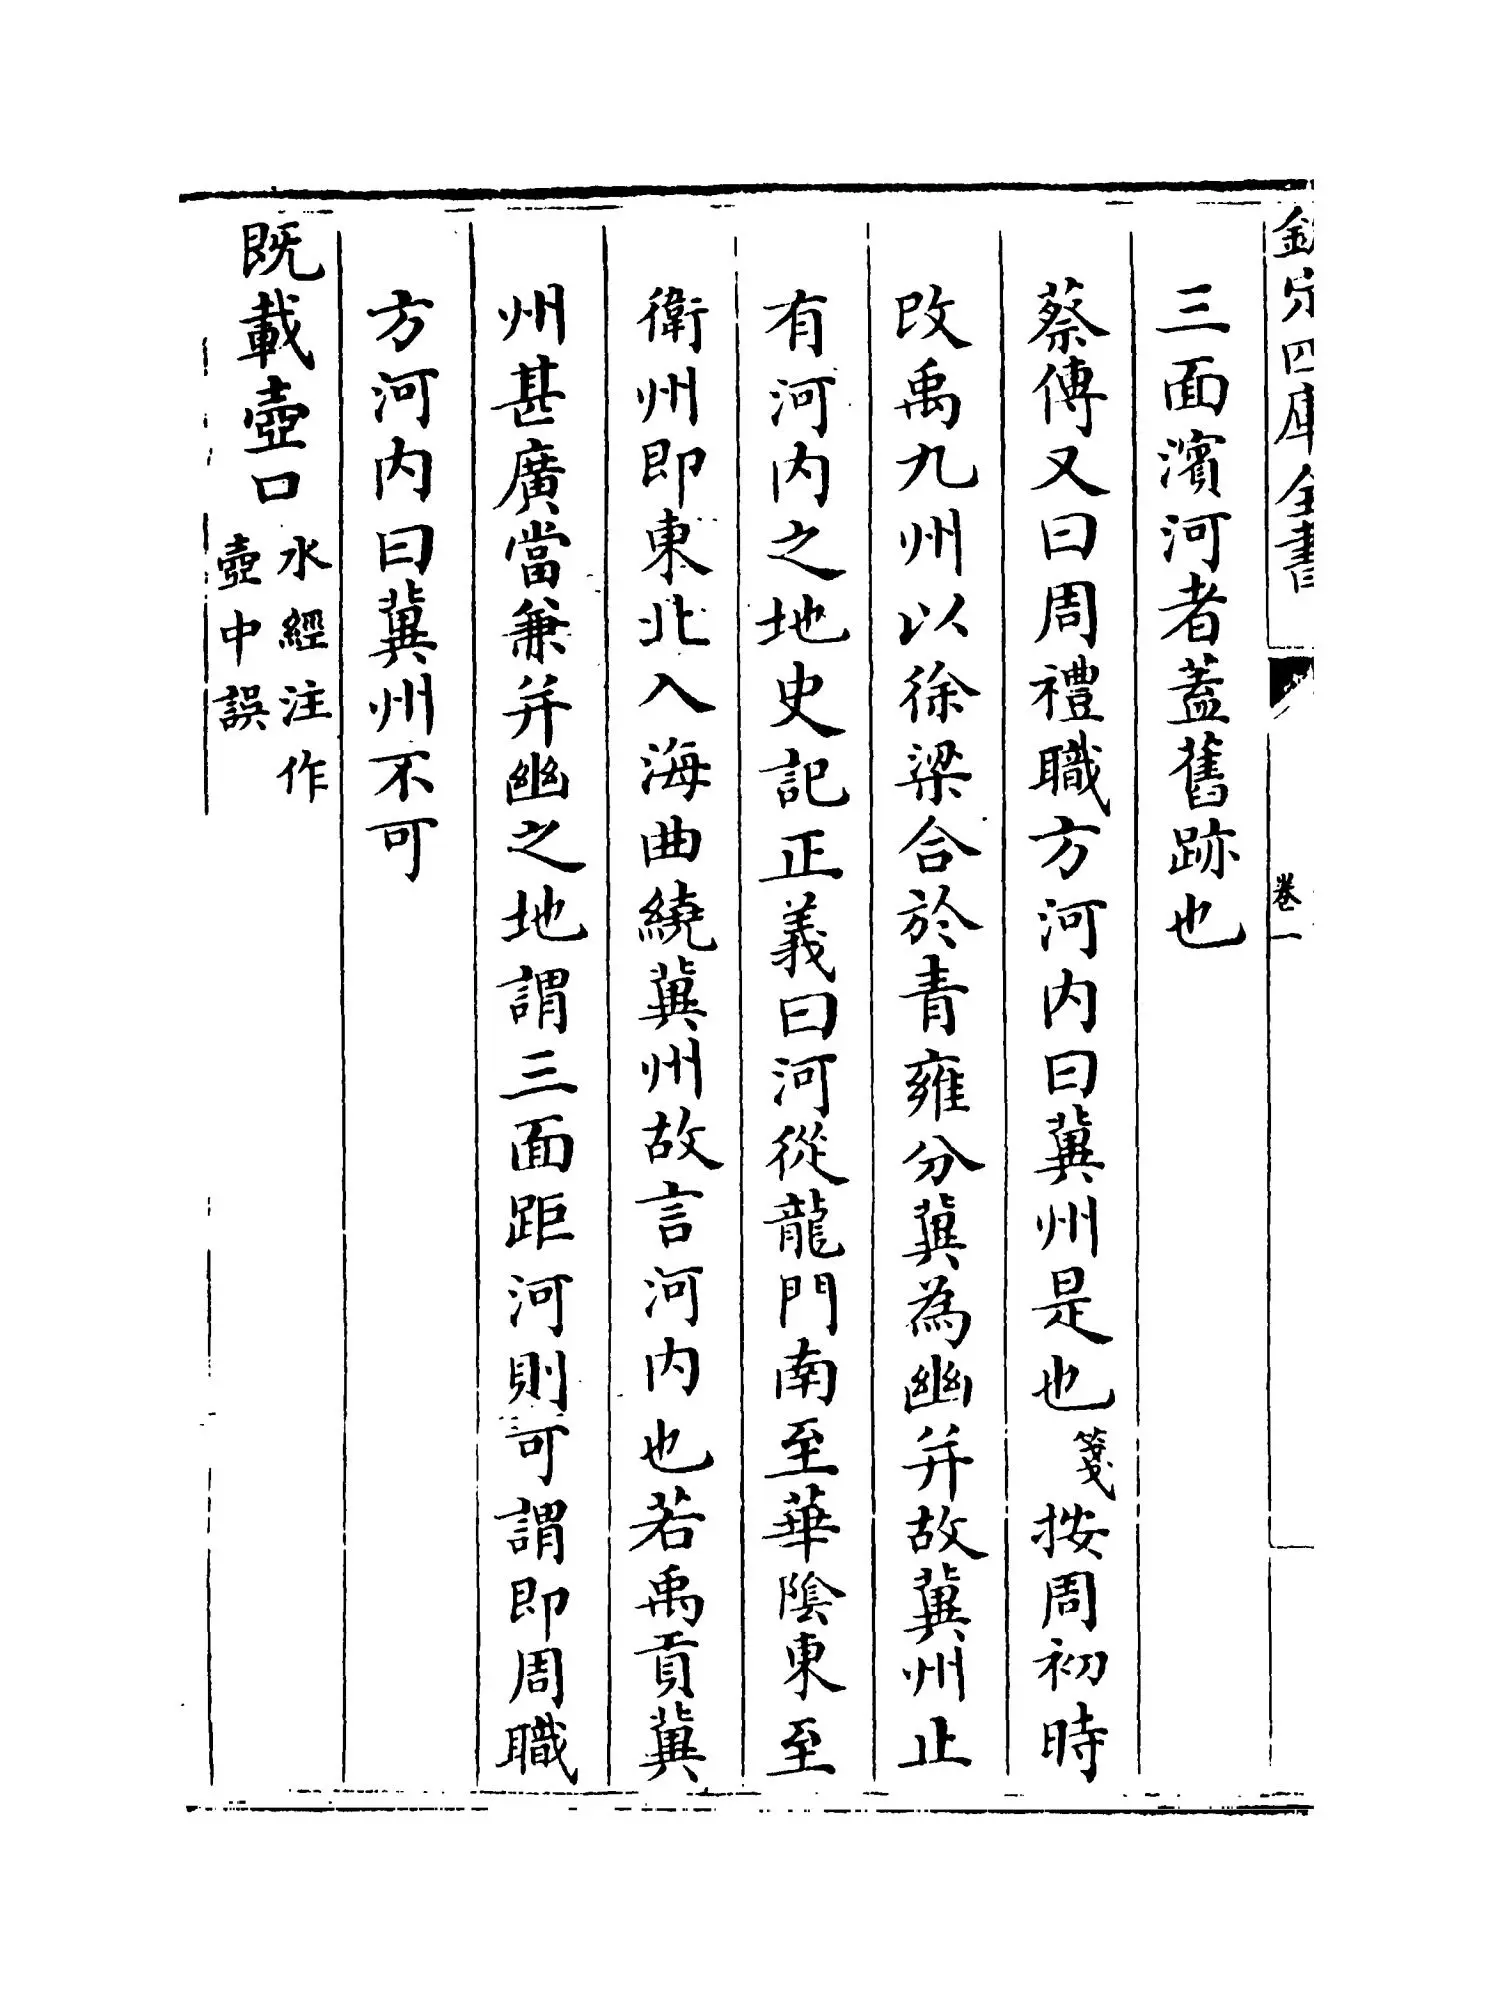 欽定四庫全書
卷一
三面濱河者蓋舊跡也
蔡傳又曰周禮職方河内曰冀州是也箋按周初時
改禹九州以徐梁合於青雍分冀為幽并故冀州止
有河内之地史記正義曰河從龍門南至華陰東至
衛州即東北入海曲繞冀州故言河内也若禹貢冀
州甚廣當兼并幽之地謂三面距河則可謂即周職
方河内曰冀州不可
既載壺口
水經注作
壺中誤